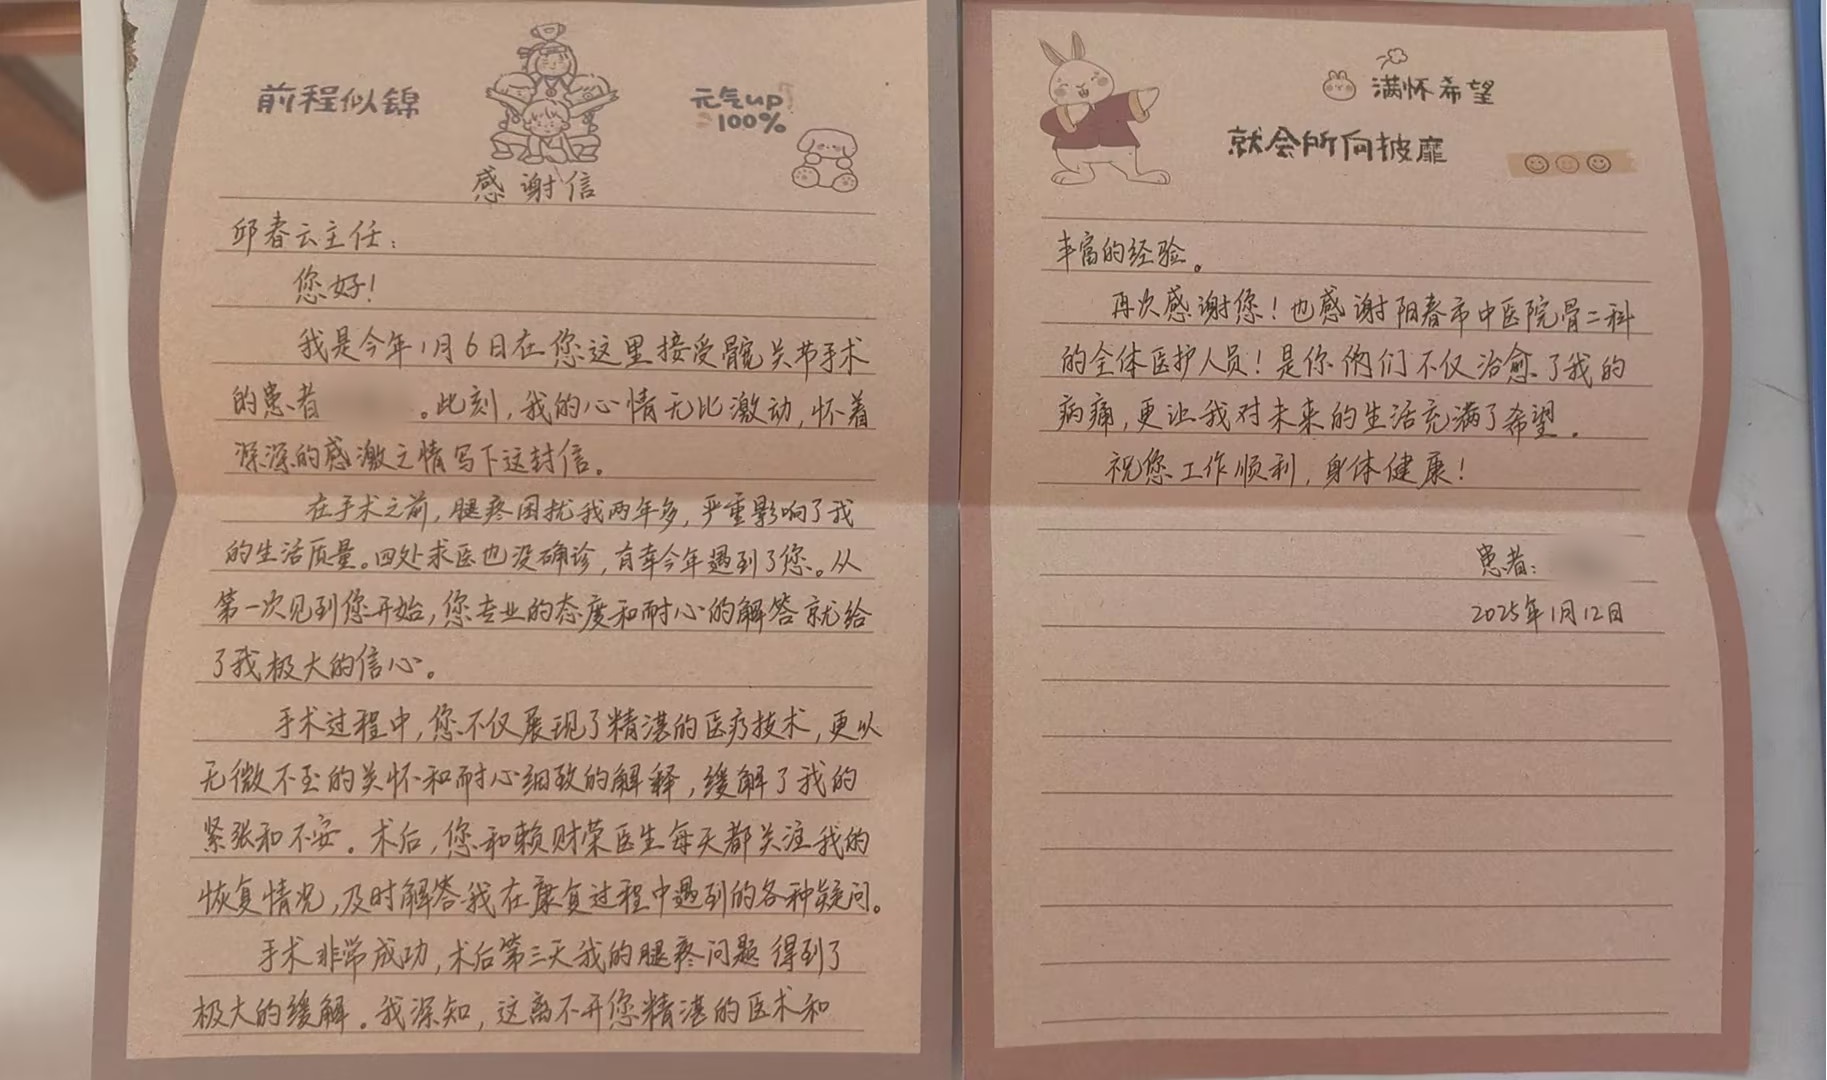 前程似锦
元气up
100%
感谢信
邱春云主任：
您好！
我是今年1月6日在您这里接受髋关节手术
的患者
。此刻，我的心情无比激动，怀着
深深的感激之情写下这封信。
在手术之前，腿疼困扰我两年多，严重影响了我
的生活质量。四处求医也没确诊，有幸今年遇到了您。从
第一次见到您开始，您专业的态度和耐心的解答就给
了我极大的信心。
手术过程中，您不仅展现了精湛的医疗技术，更以
无微不至的关怀和耐心细致的解释，缓解了我的
紧张和不安。术后，您和赖财荣医生每天都关注我的
恢复情况，及时解答我在康复过程中遇到的各种疑问。
手术非常成功，术后第三天我的腿疼问题得到了
极大的缓解。我深知，这离不开您精湛的医术和
满怀希望
就会所向披靡
丰富的经验。
再次感谢您！也感谢阳春市中医院骨二科
的全体医护人员！是你们不仅治愈了我的
病痛，更让我对未来的生活充满了希望。
祝您工作顺利，身体健康！
患者：
2025年1月12日